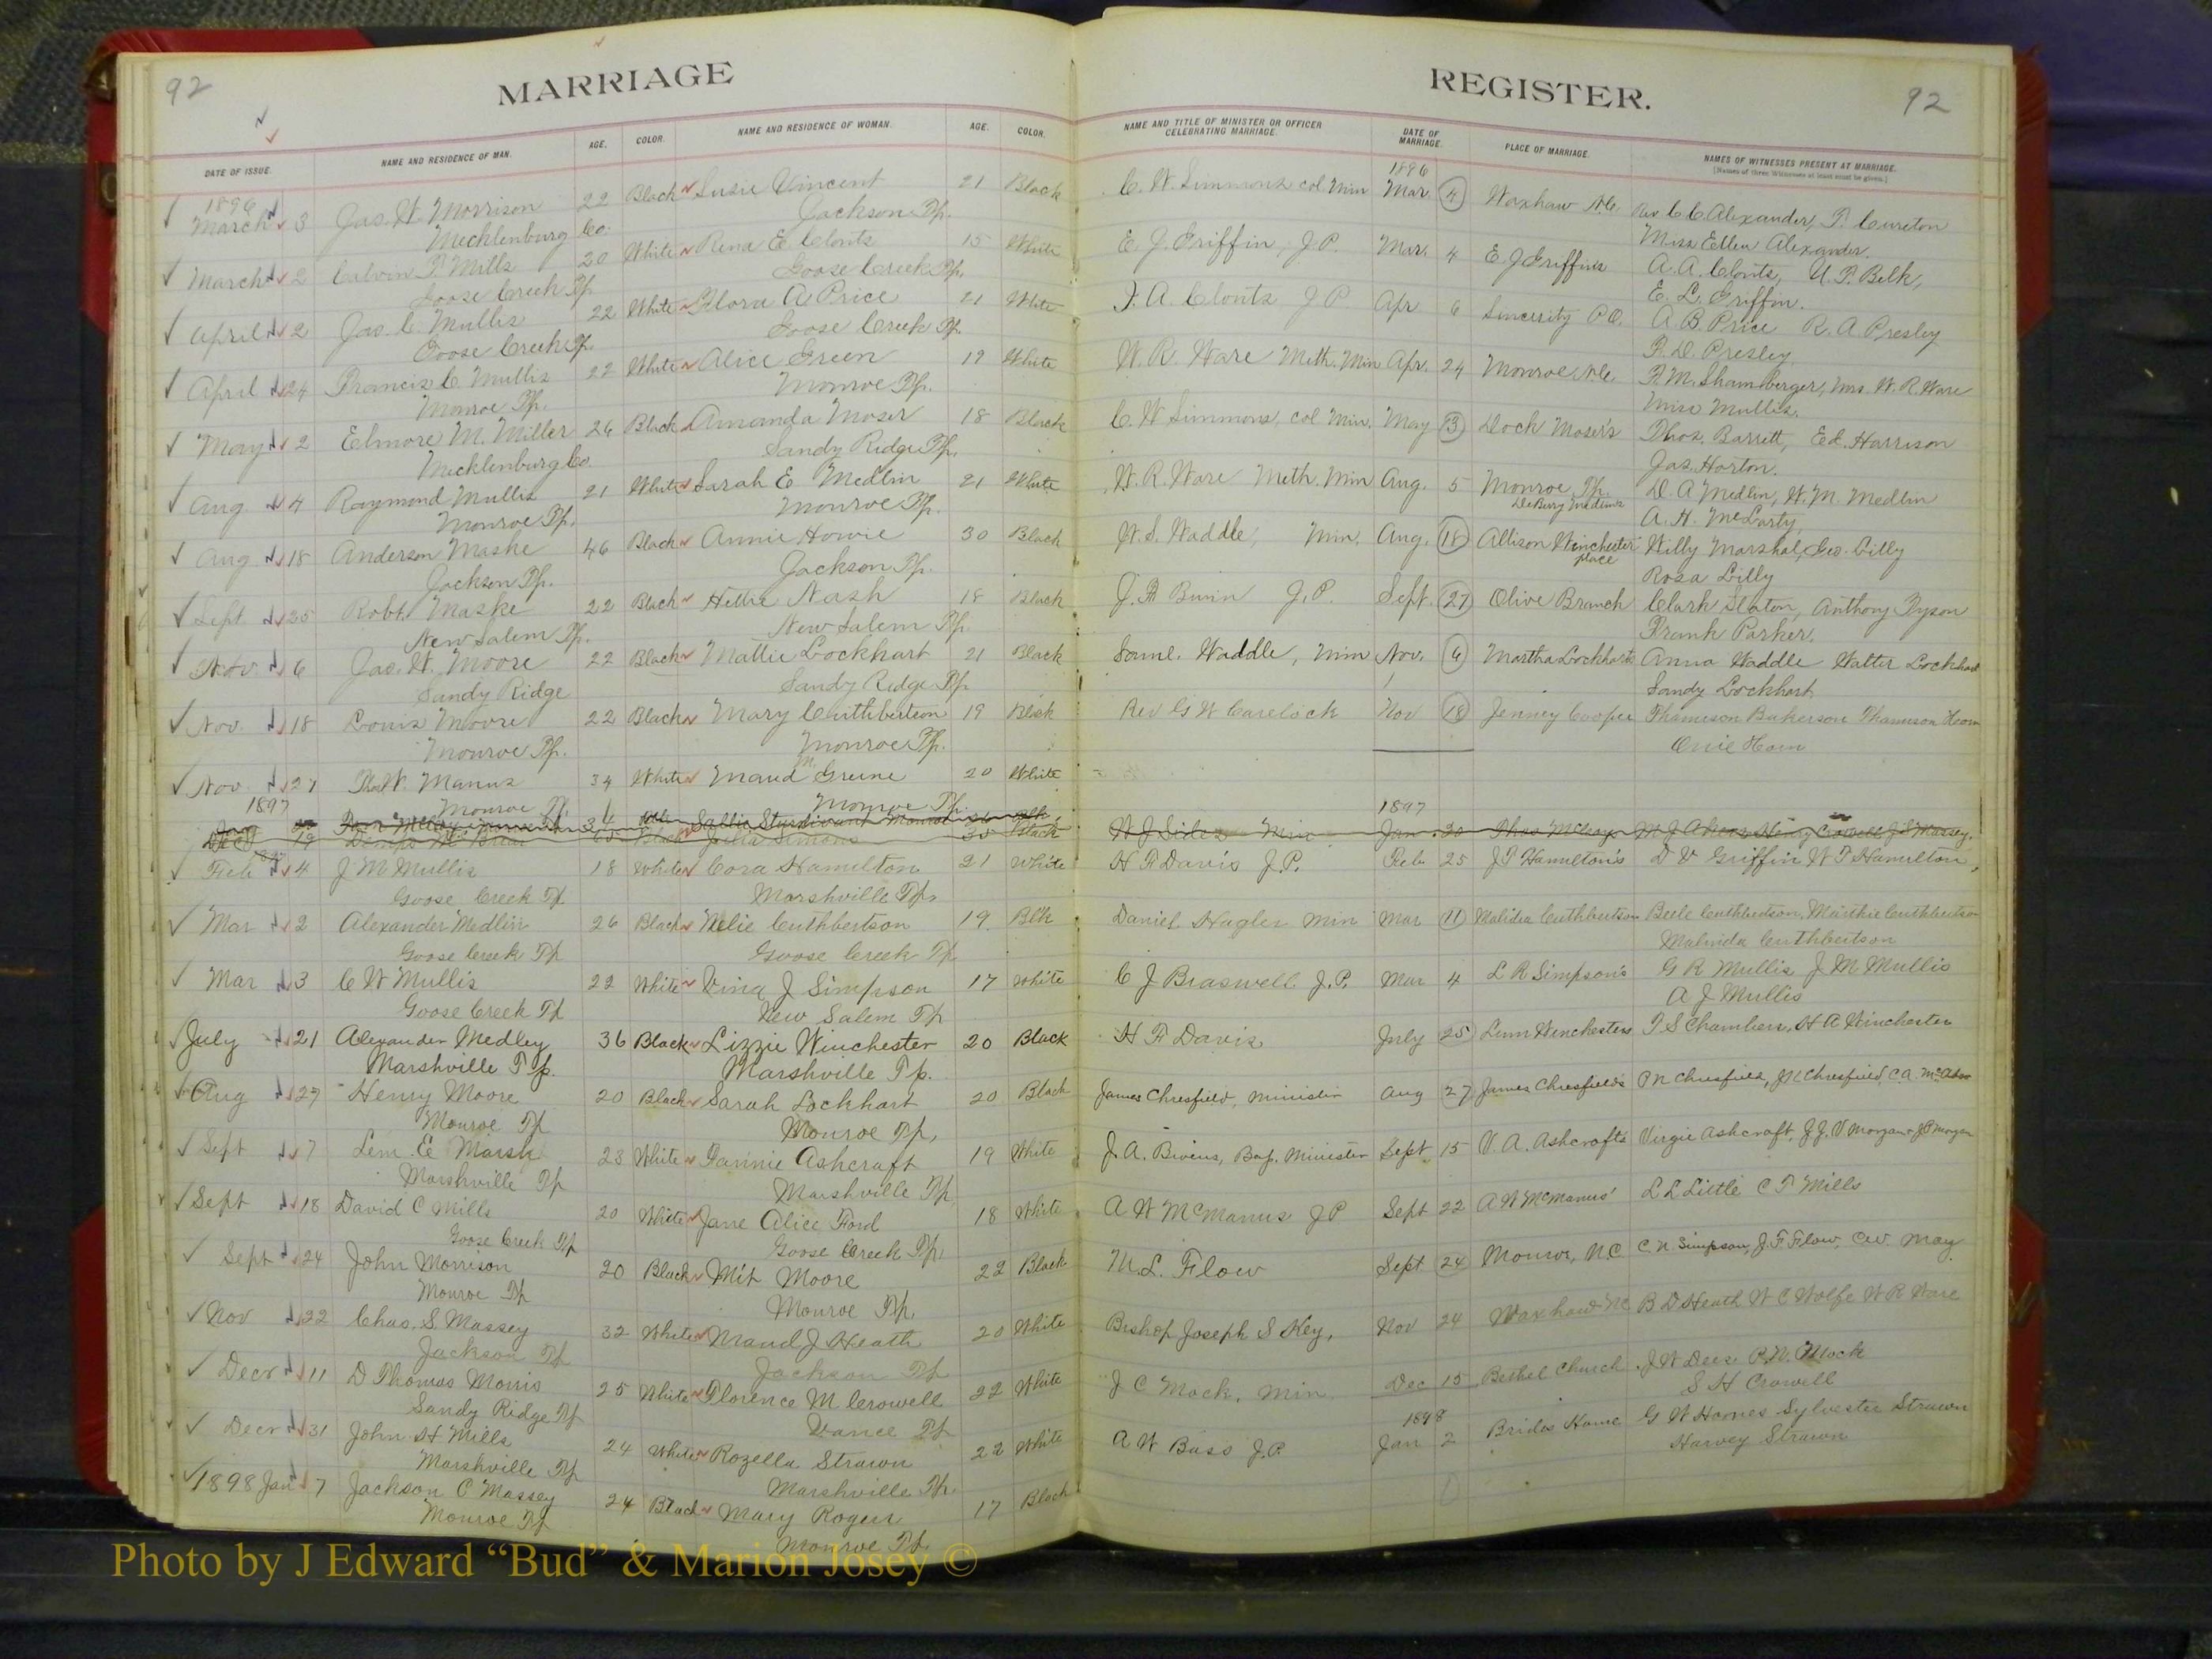 92
MARRIAGE
REGISTER.
92
DATE OF ISSUE.
NAME AND RESIDENCE OF MAN.
AGE.
COLOR.
NAME AND RESIDENCE OF WOMAN.
AGE.
COLOR.
NAME AND TITLE OF MINISTER OR OFFICER
CELEBRATING MARRIAGE.
DATE OF
MARRIAGE.
PLACE OF MARRIAGE.
NAMES OF WITNESSES PRESENT AT MARRIAGE.
[Names of three Witnesses at least must be given.]
1896
1896
March 3 Jas. W. Morrison 22 Black Susie Vincent 21 Black C. W. Simmons col. Min Mar. 4 Waxhaw N.C. Rev C C Alexander, P. Cureton
Mecklenburg Co. Jackson Tp. Miss Ellen Alexander.
March 2 Calvin P. Mills 20 White Rena E. Clonts 15 White E. J. Griffin, J.P. Mar. 4 E. J Griffins A. A. Clonts, U. P. Belk,
Goose Creek Tp Goose Creek Tp. E. L. Griffin.
April 2 Jas. C. Mullis 22 White Flora A. Price 21 White F. A. Clontz J P Apr 6 Sincerity P.O. A B Price R. A Presley
Goose Creek Tp. Goose Creek Tp. P. D. Presley
April 24 Francis C. Mullis 22 White Alice Green 19 White W. R. Ware Meth. Min Apr. 24 Monroe N.C. P. M. Shamberger, Mrs. W. R Ware
Monroe Tp. Monroe Tp. Miss Mullis.
May 2 Elmore M. Miller 26 Black Amanda Moser 18 Black C. W Simmons, col Min. May 3 Dock Moser's Thos. Barrett, Ed. Harrison
Mecklenburg Co. Sandy Ridge Tp. Jas. Horton.
Aug 4 Raymond Mullis 21 White Sarah E Medlin 21 White W. R. Ware Meth. Min Aug. 5 Monroe Tp. D. A Medlin, W. M. Medlin
Monroe Tp. Monroe Tp. DeBerry Medlins A. H. McLarty
Aug 18 Anderson Maske 46 Black Annie Howie 30 Black W. S. Waddle, Min. Aug. 18 Allison Winchester place Willy Marshal, Geo. Lilly
Jackson Tp. Jackson Tp. Rosa Lilly
Sept 25 Robt. Maske 22 Black Hettie Nash 18 Black J. A Bivin J.P. Sept. 27 Olive Branch Clark Staton, Anthony Tyson
New Salem Tp. New Salem Tp. Frank Parker.
Nov. 6 Jas. W. Moore 22 Black Mattie Lockhart 21 Black Saml. Waddle, Min Nov. 6 Martha Lockharts Anna Waddle Walter Lockhart
Sandy Ridge Sandy Ridge Tp Sandy Lockhart
Nov. 18 Louis Moore 22 Black Mary Cuithbertson 19 Black Rev G W Carelock Nov 18 Jenney Cooper Thameson Bakerson Thameson Horn
Monroe Tp. Monroe Tp. Onie Horn
Nov 27 Thos W. Manus 34 White Maud M. Greene 20 White
Monroe Tp. Monroe Tp.
1897 1897
Jan 34 Sallie Sturdivant Monroe Blk W J Siler Min Jan. 20 Thos McCays
Dec 19 Black Julia Simons 35 Black
Feb 4 J M Mullis 18 White Cora Hamilton 21 White H F Davis J.P. Feb. 25 J P Hamilton's D V Griffin W T Hamilton,
Goose Creek Tp Marshville Tp.
Mar 2 Alexander Medlin 26 Black Nelie Cuthbertson 19 Blk Daniel Hagler Min Mar 11 Malidia Cuthbertson Beele Cuthbertson, Marthie Cuthbertson
Goose Creek Tp Goose Creek Tp Malinda Cuthbertson
Mar 3 C W Mullis 22 White Vina J Simpson 17 White C J Braswell J.P. Mar 4 L R Simpson's G R Mullis J M Mullis
Goose Creek Tp New Salem Tp A J Mullis
July 21 Alexander Medley 36 Black Lizzie Winchester 20 Black H F Davis July 25 Lum Winchesters T S Chambers, H A Winchester
Marshville Tp. Marshville Tp.
Aug 27 Henry Moore 20 Black Sarah Lockhart 20 Black James Chresfield, minister Aug 27 James Chresfield's P N Chresfield, J N Chresfield, C.A. McAdoo
Monroe Tp Monroe Tp,
Sept 7 Lem. E Marsh 23 White Fannie Ashcraft 19 White J. A. Bivens, Bap. Minister Sept 15 V. A. Ashcrafts Virgie Ashcraft, J. J. V Morgan & J P Morgan
Marshville Tp Marshville Tp
Sept 18 David C Mills 20 White Jane Alice Ford 18 White A W McManus J P Sept 22 A W McManus' L L Little C T Mills
Goose Creek Tp Goose Creek Tp,
Sept 24 John Morrison 20 Black Mit Moore 22 Black M. L. Flow Sept 24 Monroe, N.C C. N. Simpson, J. F. Flow, C.W. May
Monroe Tp Monroe Tp,
Nov 22 Chas. S Massey 32 White Maud J Heath 20 White Bishop Joseph S Key, Nov 24 Waxhaw NC B D Heath W C Wolfe W R Ware
Jackson Tp Jackson Tp
Decr 11 D Thomas Morris 25 White Florence M. Crowell 22 White J C Mock, Min Dec 15 Bethel Church J W Dees P. N. Mock
Sandy Ridge Tp Vance Tp S H Crowell
1898
Decr 31 John H Mills 24 White Rozella Strawn 22 White A W Bass J.P. Jan 2 Brides Home G W Haones Sylvester Strawn
Marshville Tp Marshville Tp. Harvey Strawn
1898 Jan 7 Jackson C Massey 24 Black Mary Roger 17 Black
Monroe Tp Monroe Tp.
Photo by J Edward “Bud” & Marion Josey ©